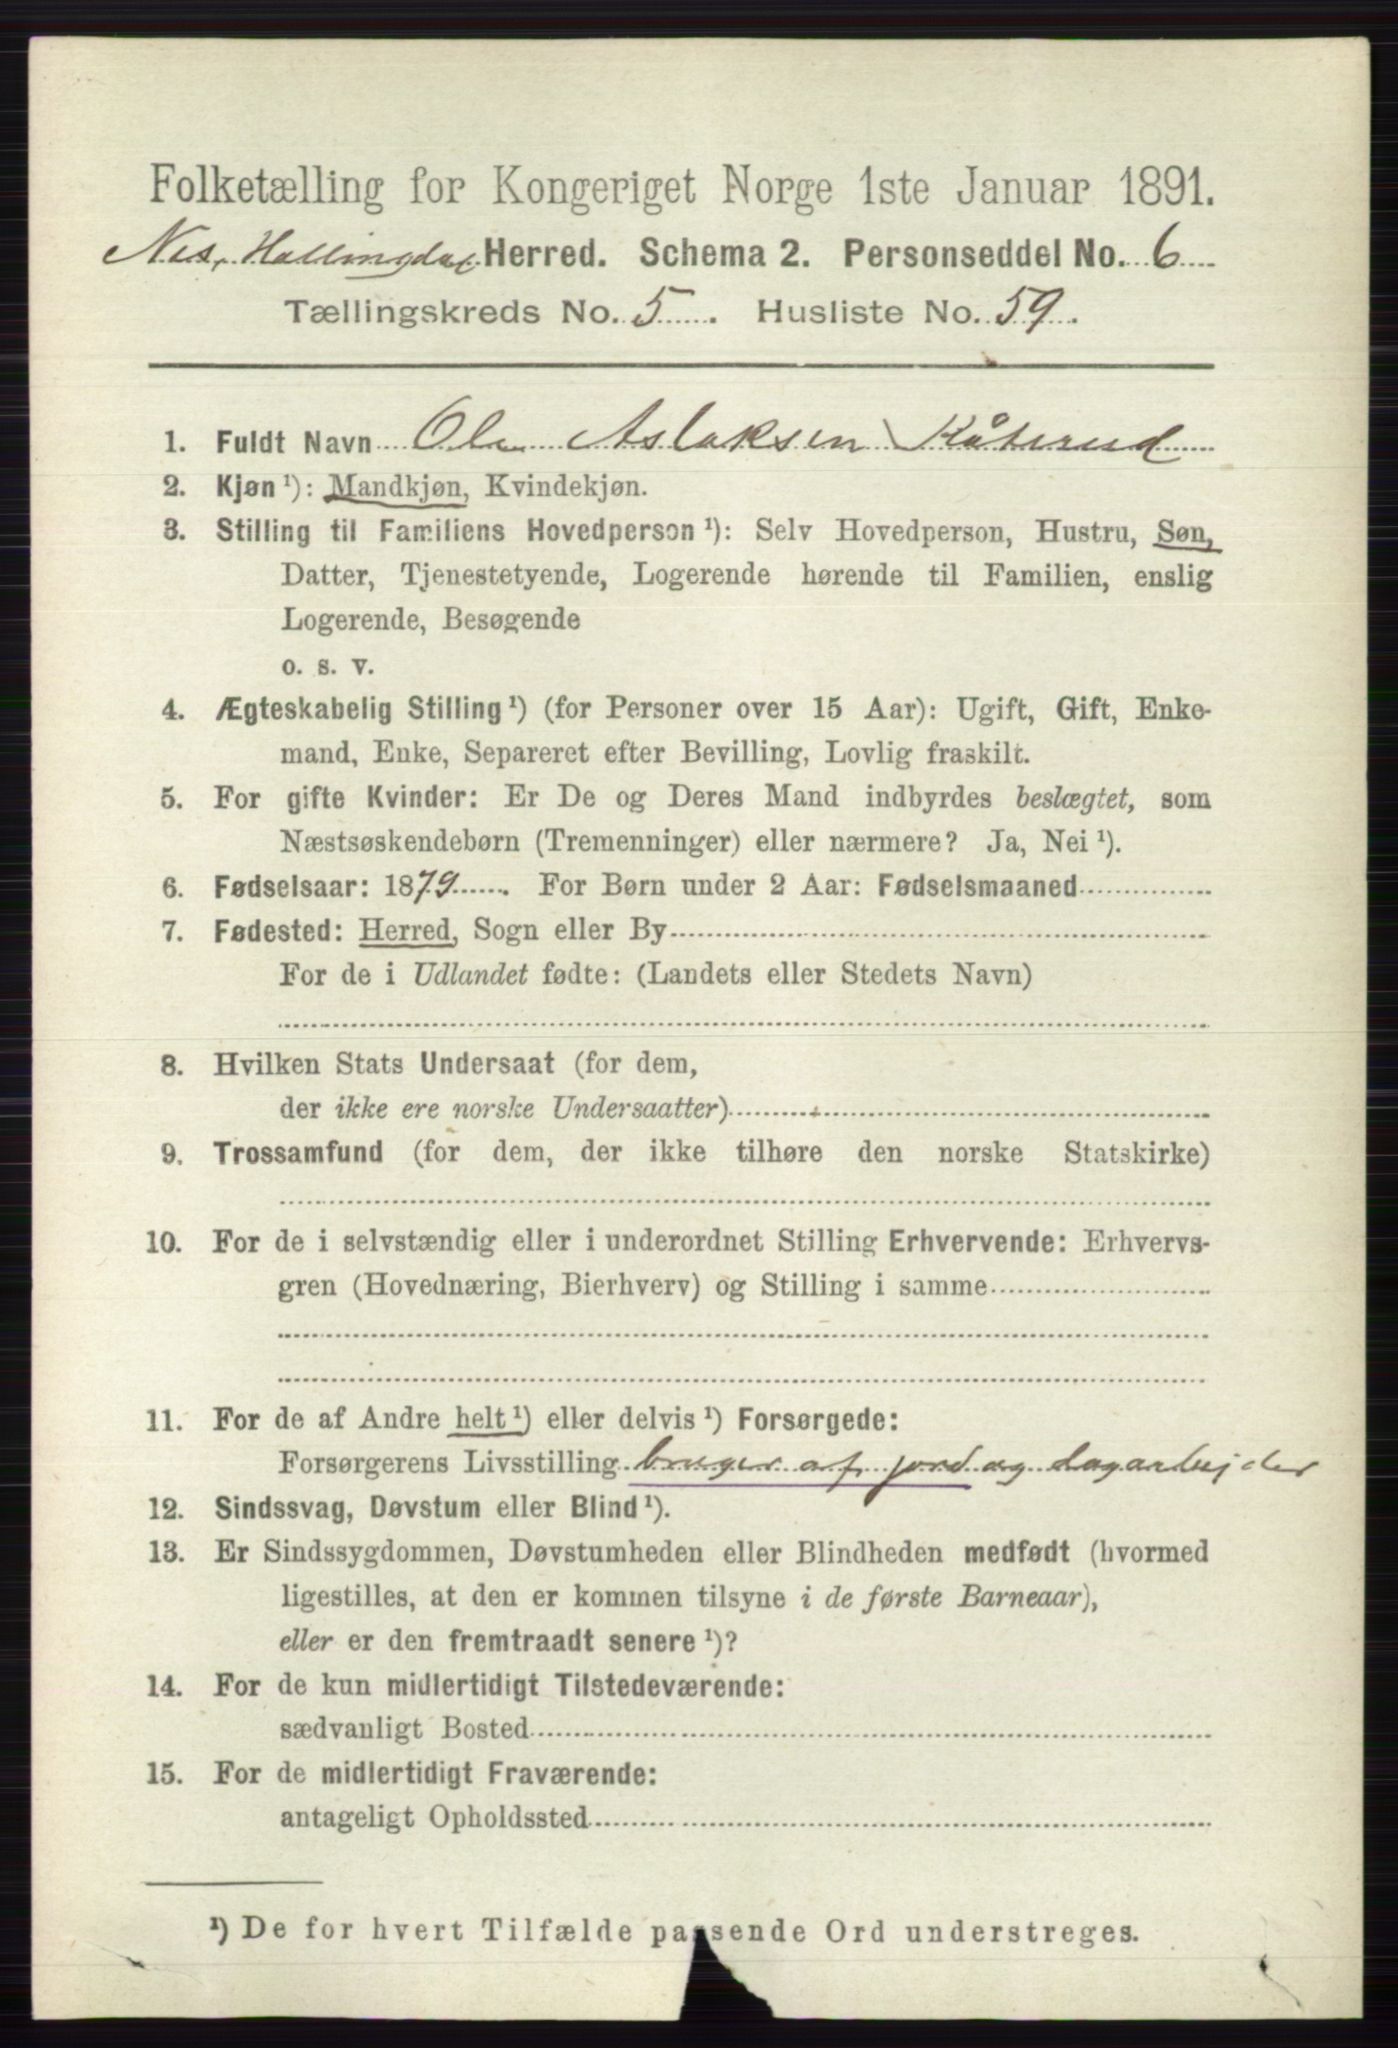 Folketælling for Kongeriget Norge 1ste Januar 1891.
Nes, Hallingdal Herred. Schema 2. Personseddel No. 6
Tællingskreds No. 5. Husliste No. 59.
1. Fuldt Navn Ole Aslaksen Kåterud
2. Kjøn ¹): Mandkjøn, Kvindekjøn.
3. Stilling til Familiens Hovedperson ¹): Selv Hovedperson, Hustru, Søn,
Datter, Tjenestetyende, Logerende hørende til Familien, enslig
Logerende, Besøgende
o. s. v.
4. Ægteskabelig Stilling ¹) (for Personer over 15 Aar): Ugift, Gift, Enke-
mand, Enke, Separeret efter Bevilling, Lovlig fraskilt.
5. For gifte Kvinder: Er De og Deres Mand indbyrdes beslægtet, som
Næstsøskendebørn (Tremenninger) eller nærmere? Ja, Nei ¹).
6. Fødselsaar: 1879. For Børn under 2 Aar: Fødselsmaaned
7. Fødested: Herred, Sogn eller By
For de i Udlandet fødte: (Landets eller Stedets Navn)
8. Hvilken Stats Undersaat (for dem,
der ikke ere norske Undersaatter)
9. Trossamfund (for dem, der ikke tilhøre den norske Statskirke)
10. For de i selvstændig eller i underordnet Stilling Erhvervende: Erhvervs-
gren (Hovednæring, Bierhverv) og Stilling i samme
11. For de af Andre helt ¹) eller delvis ¹) Forsørgede:
Forsørgerens Livsstilling bruger af jord og dagarbejder
12. Sindssvag, Døvstum eller Blind ¹).
13. Er Sindssygdommen, Døvstumheden eller Blindheden medfødt (hvormed
ligestilles, at den er kommen tilsyne i de første Barneaar),
eller er den fremtraadt senere ¹)?
14. For de kun midlertidigt Tilstedeværende:
sædvanligt Bosted
15. For de midlertidigt Fraværende:
antageligt Opholdssted
¹) De for hvert Tilfælde passende Ord understreges.